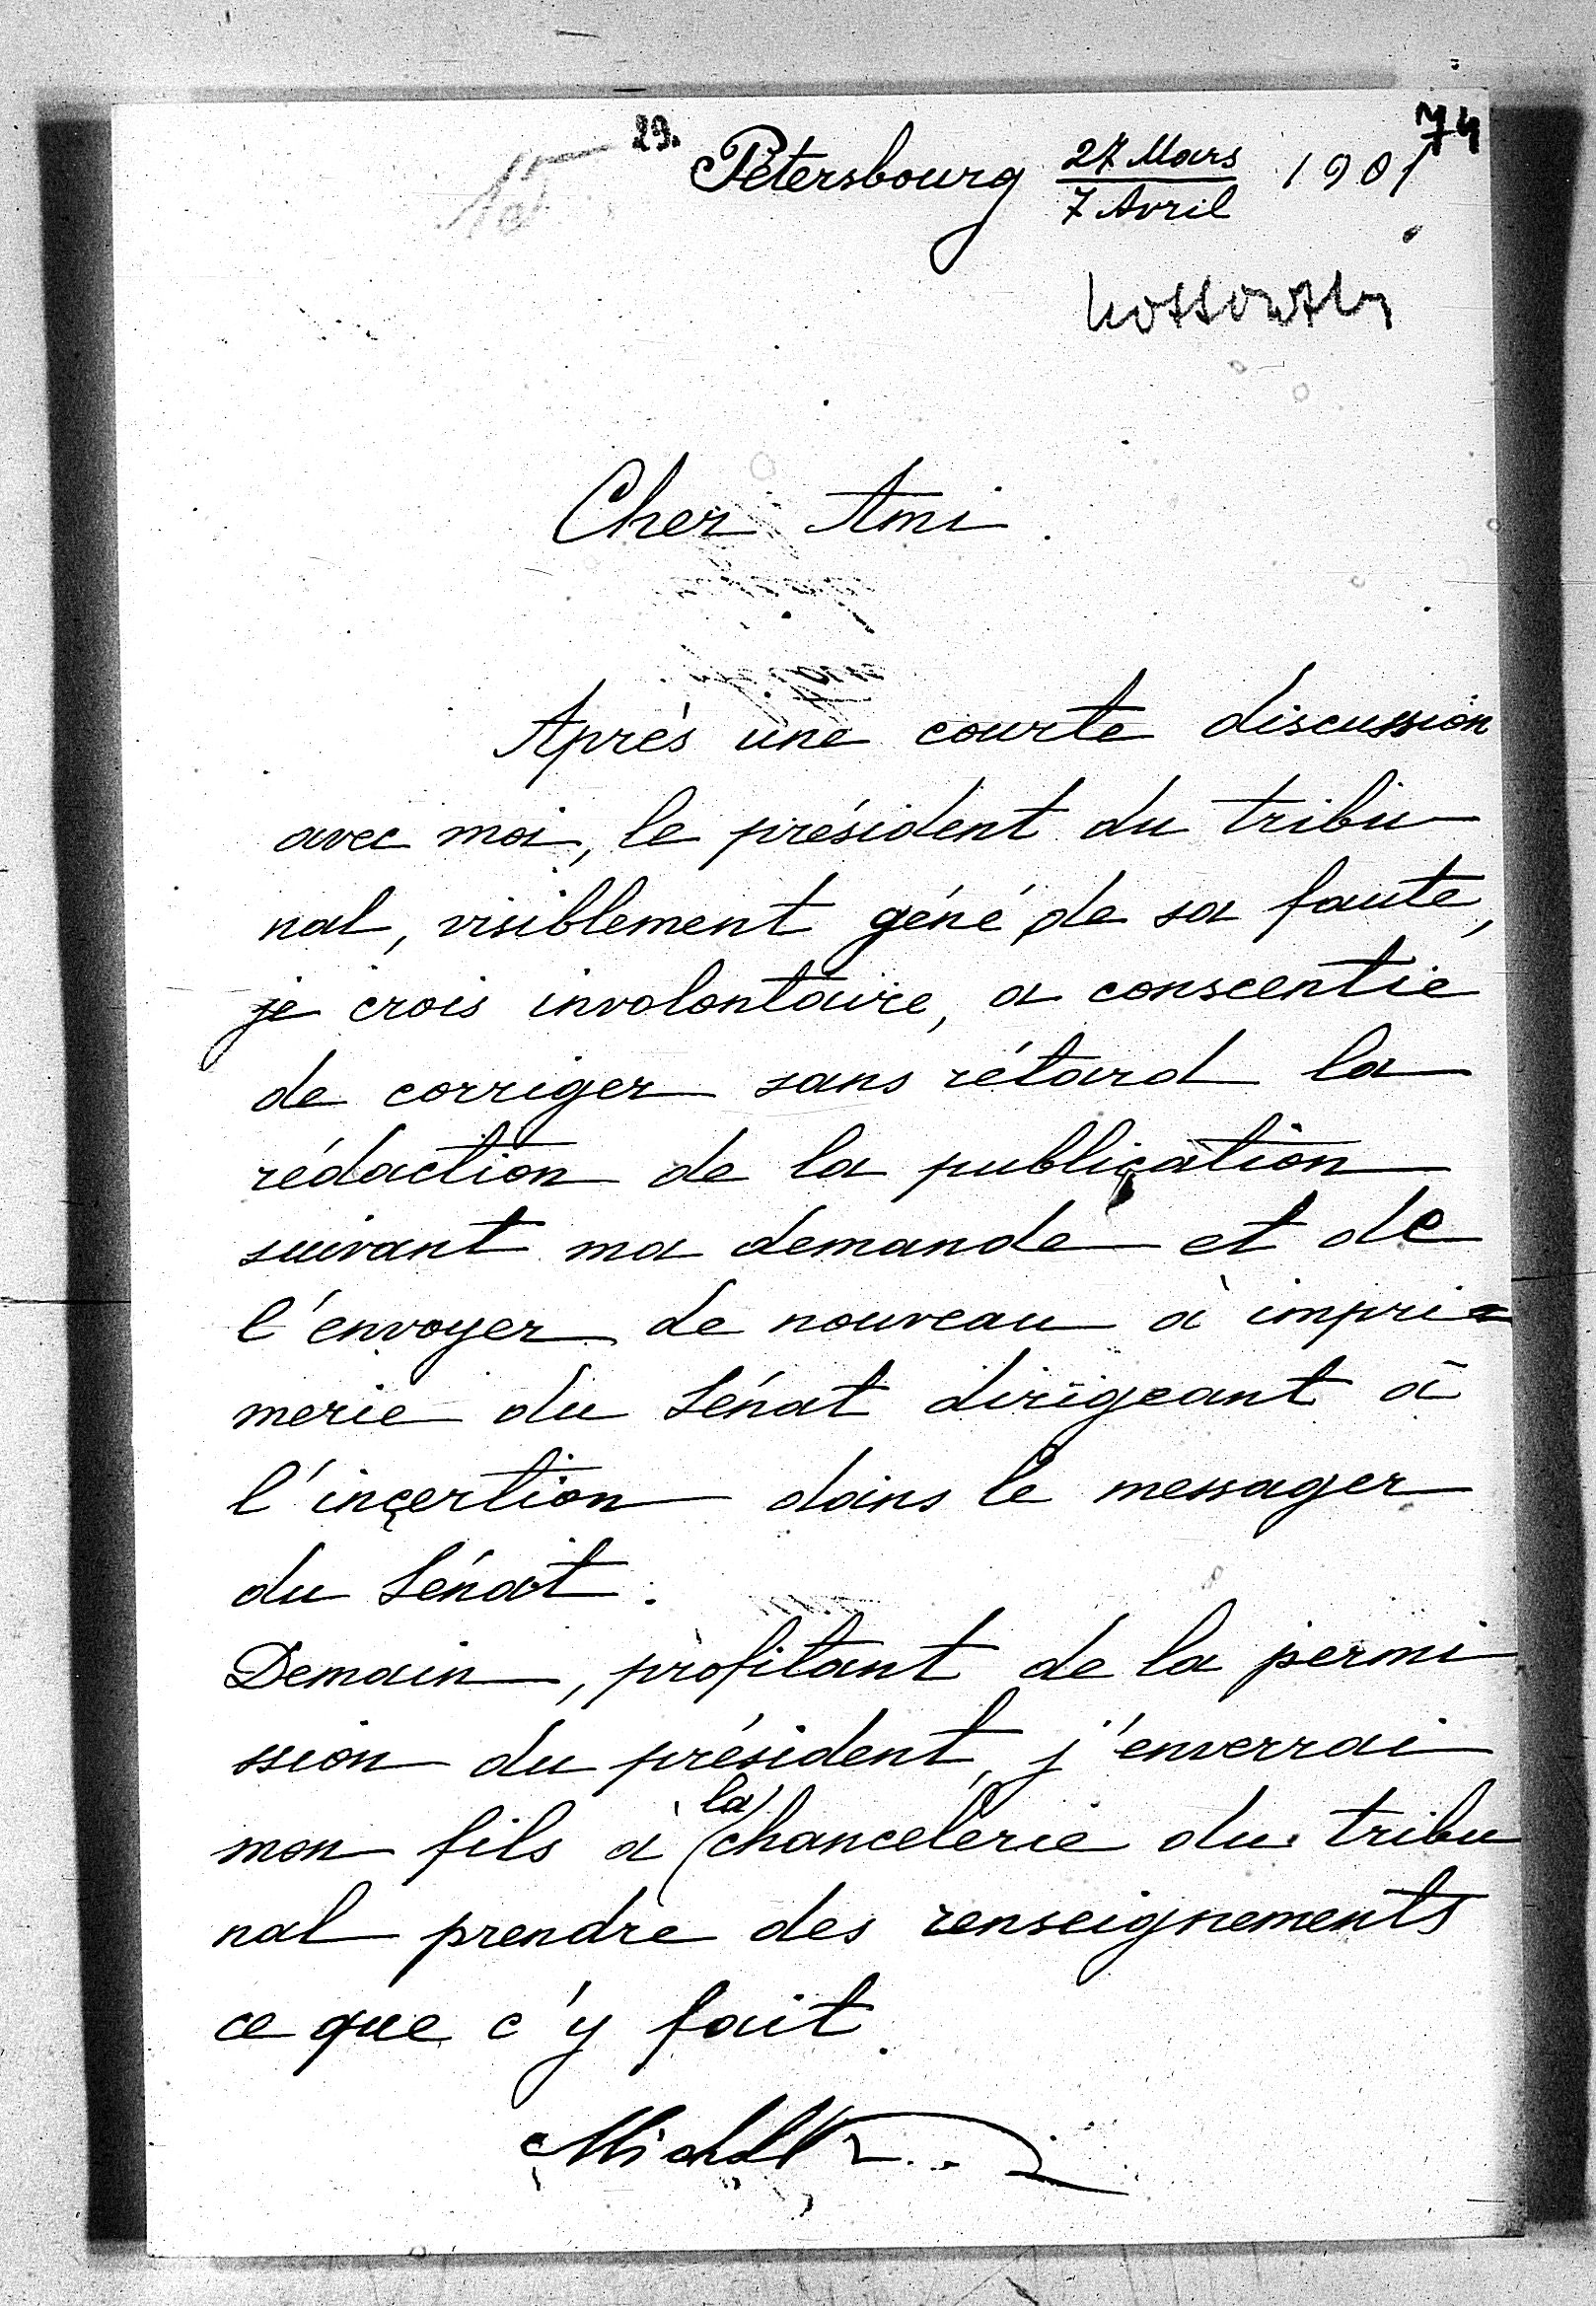 29.
74
Pétersbourg 27 Mars / 7 Avril 1901
Kossowski
Cher Ami.
Aprés une courte discussion
avec moi, le président du tribu
nal, visiblement géné de sa faute,
je crois involontaire, a conscentie
de corriger sans rétard la
rédaction de la publication
suivant ma demande et de
l'envoyer de nouveau à impri-
merie du Sénat dirigeant à
l'inçertion dans le messager
du Sénat.
Demain, profitant de la permi
ssion du président, j'enverrai
mon fils à la chancelerie du tribu
nal prendre des renseignements
ce que c'y fait.